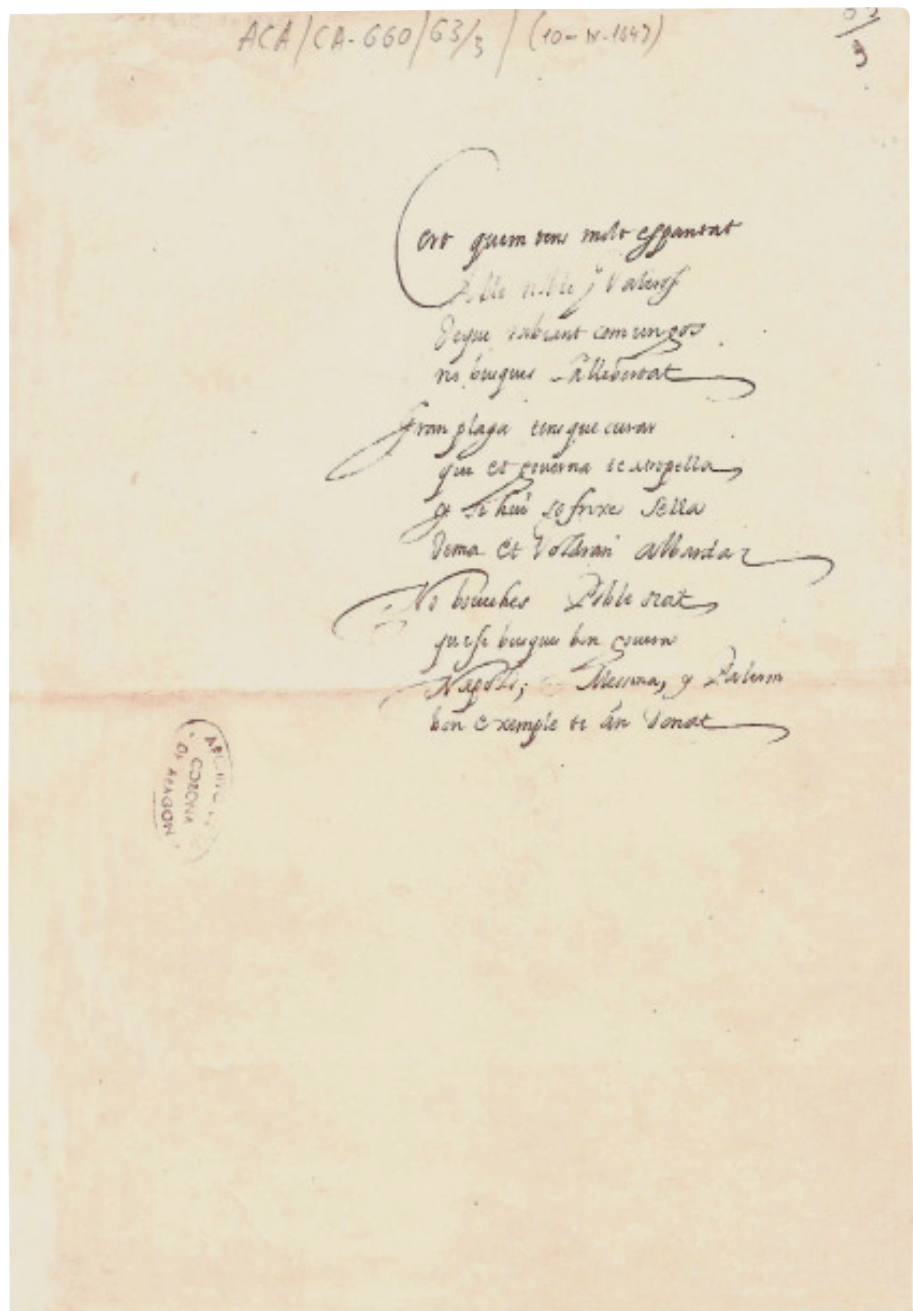 ACA/CA-660/63/3 (10-IV-1647)
3
Cert quem tens molt espantat
Poble noble y Valeros
de que rabiant com un gos
no busques la llibertat
Gran plaga tens que curar
qui et governa te atropella
y si hui sofrixs sella
dema et Voldran albardar
No Poble
que si busques bon govern
Napols; Messina, y Palerm
bon exemple te àn donat
ARCHIVO
CORONA
DE ARAGON